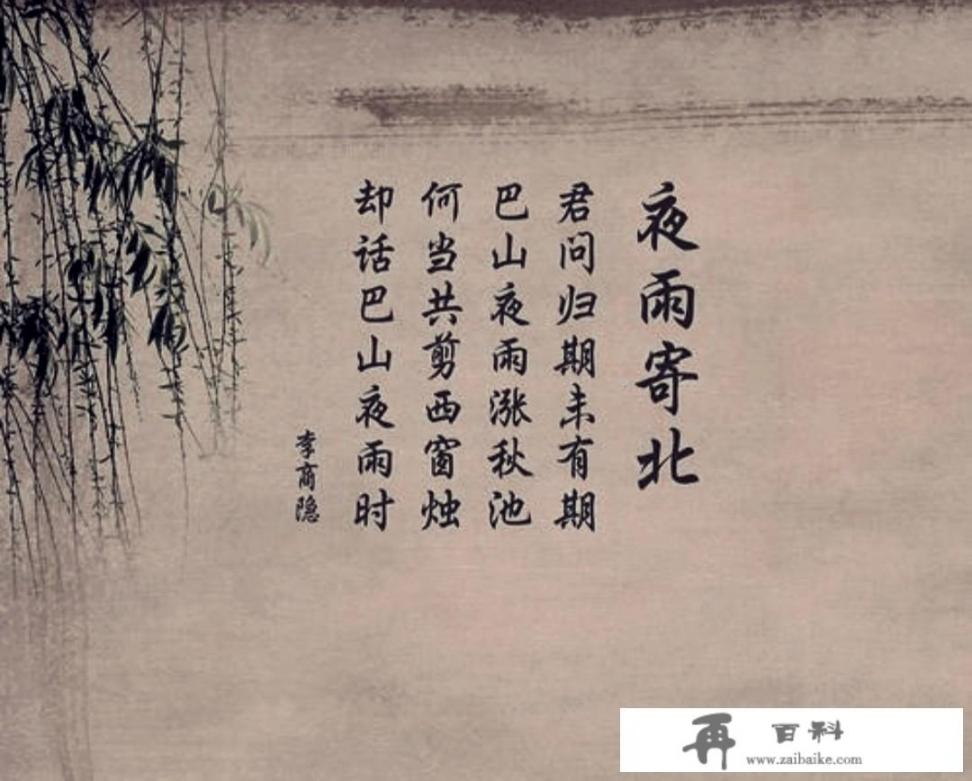 夜雨寄北
君问归期未有期
巴山夜雨涨秋池
何当共剪西窗烛
却话巴山夜雨时
李商隐
再 百科
www.zaibaike.com